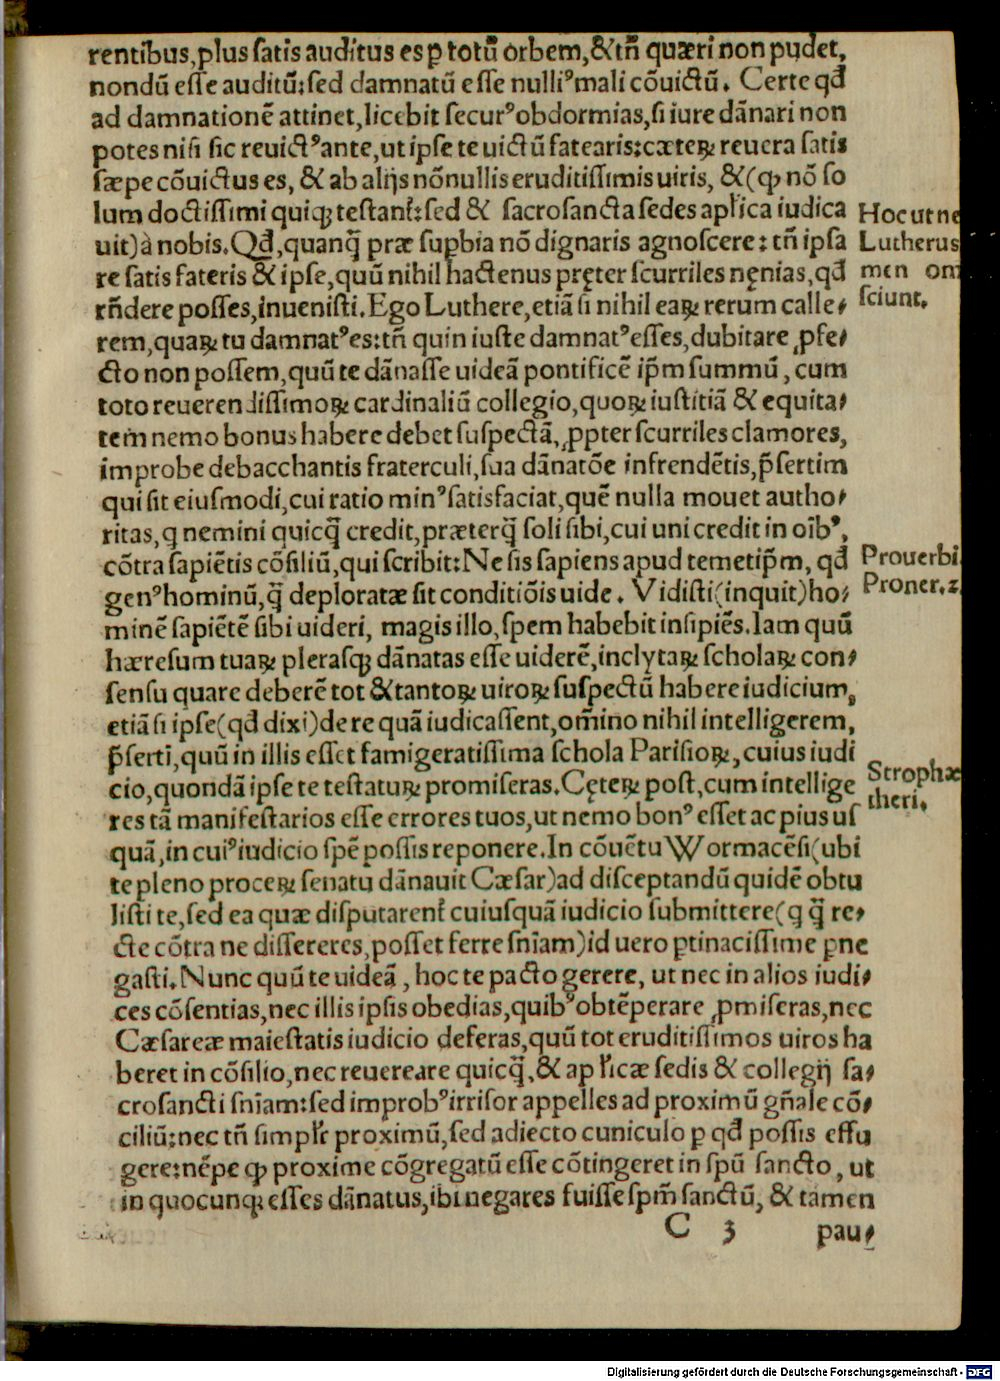 rentibus,plus satis auditus es ꝑ totũ orbem,&tñ quæri non pudet,
nondũ esse auditũ:sed damnatũ esse nulliꝰ mali cõuictũ. Certe qđ
ad damnationẽ attinet,licebit securꝰ obdormias,si iure dãnari non
potes nisi sic reuictꝰ ante,ut ipse te uictũ fatearis:cæteꝝ reuera satis
sæpe cõuictus es, & ab alijs nõnullis eruditissimis uiris, &(ꝙ nõ so
lum doctissimi quiqꝫ testant̃:sed & sacrosancta sedes apl̃ica iudica
uit)à nobis. Qđ,quanq̃ præ suꝑbia nõ dignaris agnoscere: tñ ipsa
re satis fateris & ipse,quũ nihil hactenus pręter scurriles nęnias,qđ
rñdere posses,inuenisti. Ego Luthere,etiã si nihil eaꝝ rerum calle⸗
rem,quaꝝ tu damnatꝰ es:tñ quin iuste damnatꝰ esses,dubitare ꝓfe⸗
cto non possem,quũ te dãnasse uideã pontificẽ ip̃m summũ, cum
toto reuerendissimoꝝ cardinaliũ collegio,quoꝝ iustitiã & equita⸗
tem nemo bonus habere debet suspectã, ꝓpter scurriles clamores,
improbe debacchantis fraterculi,sua dãnatõe infrendẽtis,p̃sertim
qui sit eiusmodi,cui ratio minꝰ satisfaciat,quẽ nulla mouet autho⸗
ritas,q nemini quicq̃ credit,præterq̃ soli sibi,cui uni credit in oĩbꝰ,
cõtra sapiẽtis cõsiliũ,qui scribit: Ne sis sapiens apud temetip̃m, qđ
genꝰ hominũ,q̃ deploratæ sit conditiõis uide. Vidisti(inquit)ho⸗
minẽ sapiẽtẽ sibi uideri, magis illo,spem habebit insipiẽs. Iam quũ
hæresum tuaꝝ plerasqꝫ dãnatas esse uiderẽ,inclytaꝝ scholaꝝ con⸗
sensu quare deberẽ tot &tantoꝝ uiroꝝ suspectũ habere iudicium,
etiã si ipse(qđ dixi)de re quã iudicassent,om̃ino nihil intelligerem,
p̃serti,quũ in illis esset famigeratissima schola Parisioꝝ,cuius iudi
cio,quondã ipse te testatuꝝ promiseras. Cęteꝝ post,cum intellige
res tã manifestarios esse errores tuos,ut nemo bonꝰ esset ac pius us
quã,in cuiꝰ iudicio spẽ possis reponere. In cõuẽtu Wormacẽsi(ubi
te pleno proceꝝ senatu dãnauit Cæsar)ad disceptandũ quidẽ obtu
listi te,sed ea quæ disputarent̃ cuiusquã iudicio submittere(q q̃ re⸗
cte cõtra ne dissereres,posset ferre sñiam)id uero ꝑtinacissime ꝑne
gasti. Nunc quũ te uideã, hoc te pacto gerere, ut nec in alios iudi⸗
ces cõsentias,nec illis ipsis obedias,quibꝰ obtẽperare ꝓmiseras,nec
Cæsareæ maiestatis iudicio deferas,quũ tot eruditissimos uiros ha
beret in cõsilio,nec reuereare quicq̃,& apl̃icæ sedis & collegij sa⸗
crosancti sñiam:sed improbꝰ irrisor appelles ad proximũ gñale cõ⸗
ciliũ:nec tñ simpl̃r proximũ,sed adiecto cuniculo ꝑ qđ possis effu
gere:nẽpe ꝙ proxime cõgregatũ esse cõtingeret in spũ sancto, ut
in quocunqꝫ esses dãnatus,ibi negares fuisse spm̃ sanctũ, & tamen
C 3 pau⸗
Hoc ut ne
Lutherus
men om
sciunt.
Prouerbi.
Proner.2
Strophæ
theri.
Digitalisierung gefördert durch die Deutsche Forschungsgemeinschaft - DFG